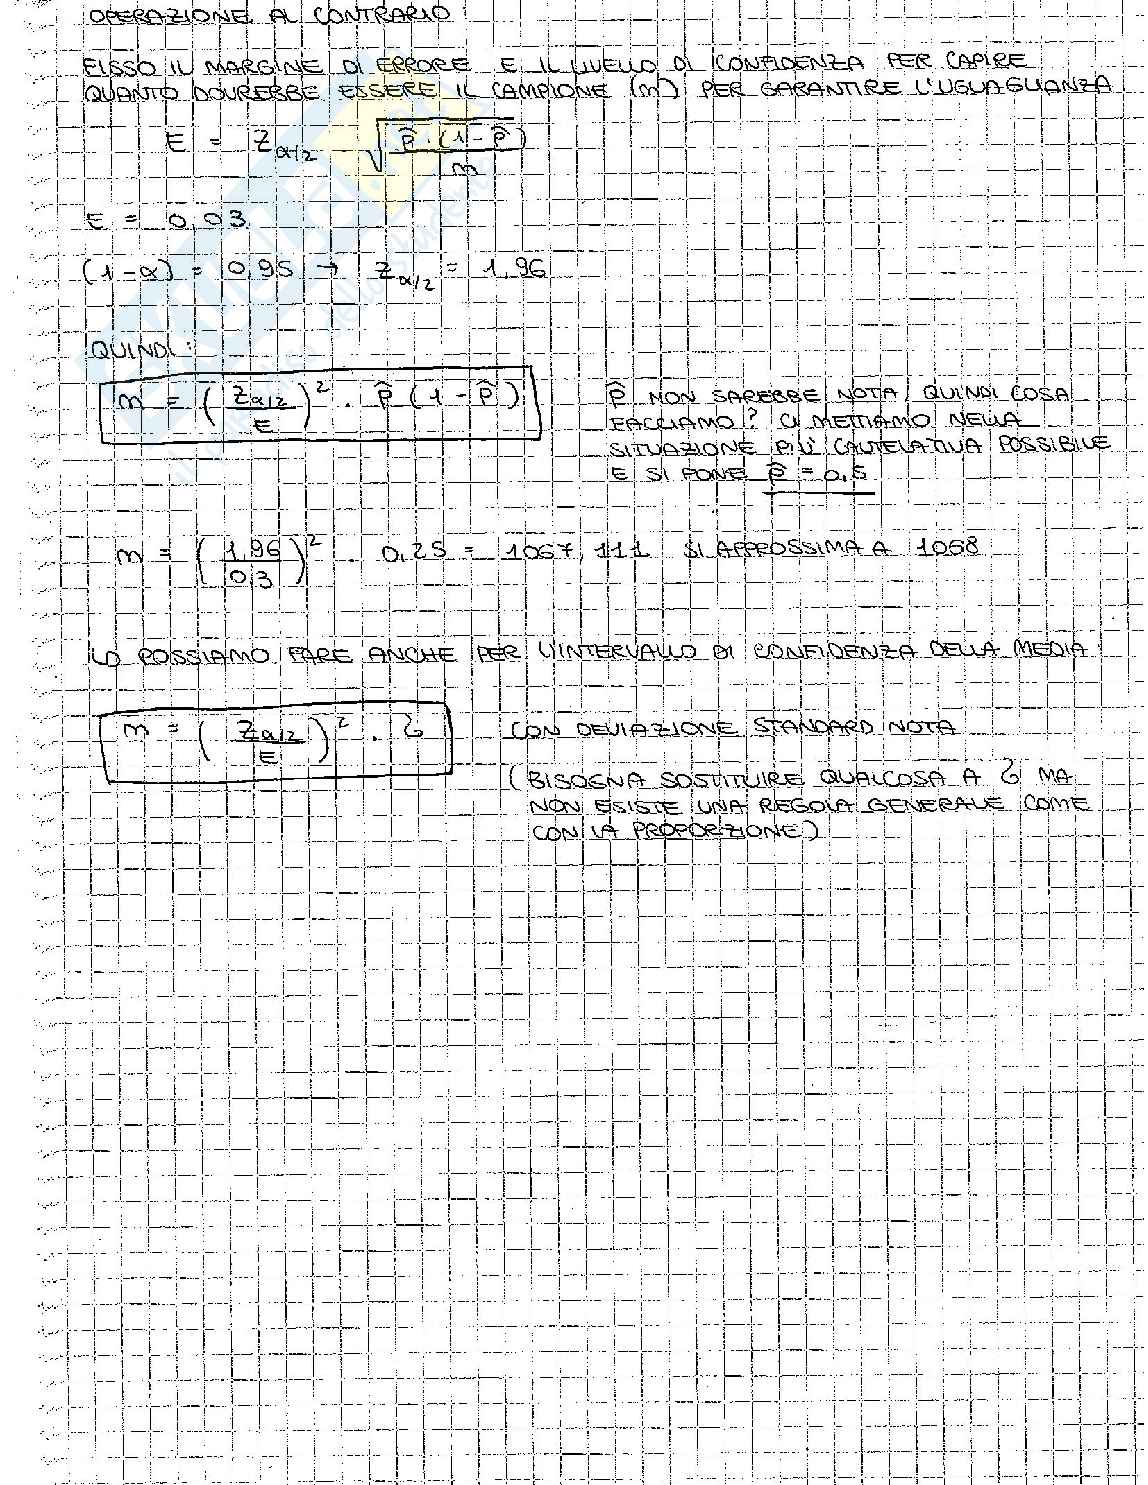 OPERAZIONE AL CONTRARIO
FISSO IL MARGINE DI ERRORE E IL LIVELLO DI CONFIDENZA PER CAPIRE
QUANTO DOVREBBE ESSERE IL CAMPIONE (n) PER GARANTIRE L'UGUAGLIANZA
E = Z α/2 √ p̂ · (1 - p̂) / n
E = 0,03
(1-α) = 0,95 → Z α/2 = 1,96
QUINDI:
n = ( Z α/2 / E )² · p̂ (1 - p̂)
p̂ NON SAREBBE NOTA, QUINDI COSA
FACCIAMO? CI METTIAMO NELLA
SITUAZIONE PIU' CAUTELATIVA POSSIBILE
E SI PONE p̂ = 0,5
n = ( 1,96 / 0,3 )² · 0,25 = 1067,111 SI APPROSSIMA A 1068
LO POSSIAMO FARE ANCHE PER L'INTERVALLO DI CONFIDENZA DELLA MEDIA
n = ( Z α/2 / E )² · σ
CON DEVIAZIONE STANDARD NOTA
(BISOGNA SOSTITUIRE QUALCOSA A σ MA
NON ESISTE UNA REGOLA GENERALE COME
CON LA PROPORZIONE)